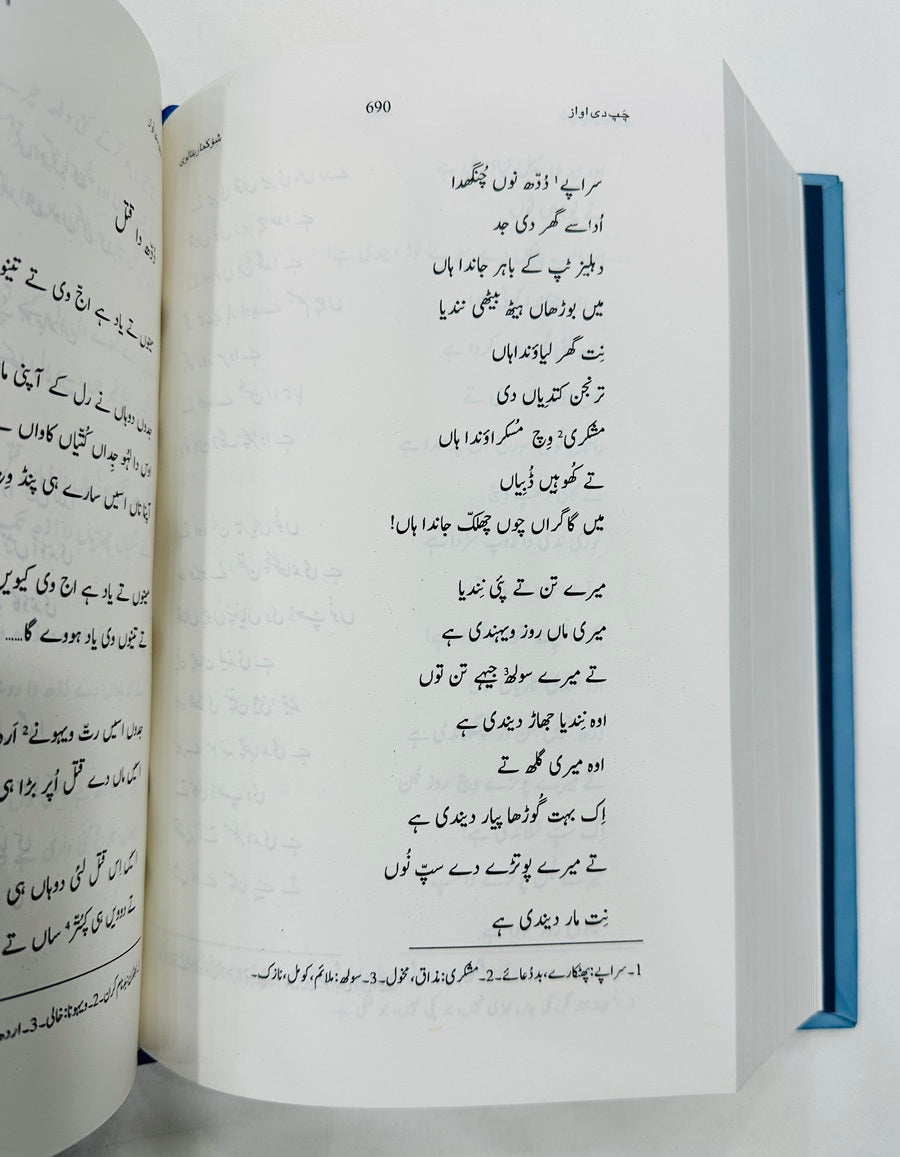 690
چپ دی اواز
سراپے¹ دُدّھ نوں چُنگھدا
اُداسے گھر دی جد
دہلیز ٹپ کے باہر جاندا ہاں
میں بوڑھاں ہیٹھ بیٹھی نندیا
نِت گھر لیاؤنداہاں
ترنجن کتدِیاں دی
مشکری² وِچ مُسکراؤندا ہاں
تے کُھوہیں ڈُبیاں
میں گاگراں چوں چھلکّ جاندا ہاں!
میرے تن تے پئی نِندیا
میری ماں روز ویہندی ہے
تے میرے سولھ³ جیہے تن توں
اوہ نِندیا جھاڑ دیندی ہے
اوہ میری گلھ تے
اِک بہت گُوڑھا پیار دیندی ہے
تے میرے پوتڑے دے سپّ نُوں
نِت مار دیندی ہے
1۔سراپے: پھٹکارے، بددُعائے۔2۔مشکری: مذاق، مخول۔3۔سولھ: ملائم، کومل، نازک۔
شوکمار بٹالوی
دُدّھ دا قتل
مینوں تے یاد ہے اجّ وی تے تینوں
جدوں دوہاں نے رل کے آپنی
دا لہُو جِداں کُتیّاں کاواں
اسیں سارے ہی پِنڈ
مینوں تے یاد ہے اج وی کیویں
تے تینوں وی یاد ہووے گا......
جدوں اسیں رتّ ویہونے²
ماں دے قتل اُپر بڑا ہی
اِس قتل لئی دوہاں ہی
تے دوویں ہی کپُتّر⁴ ساں تے
2۔ویہونا: خالی۔3۔